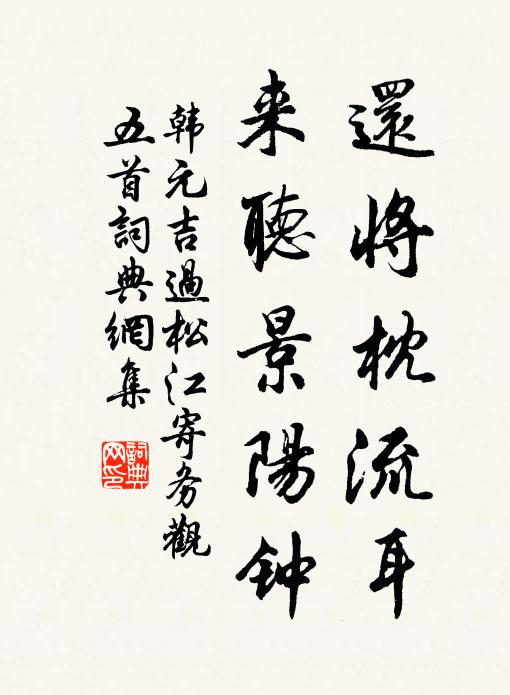 還將枕流耳
来聽景陽钟
韩元吉過松江寄务觀
五首詞典網集
詞典
网印